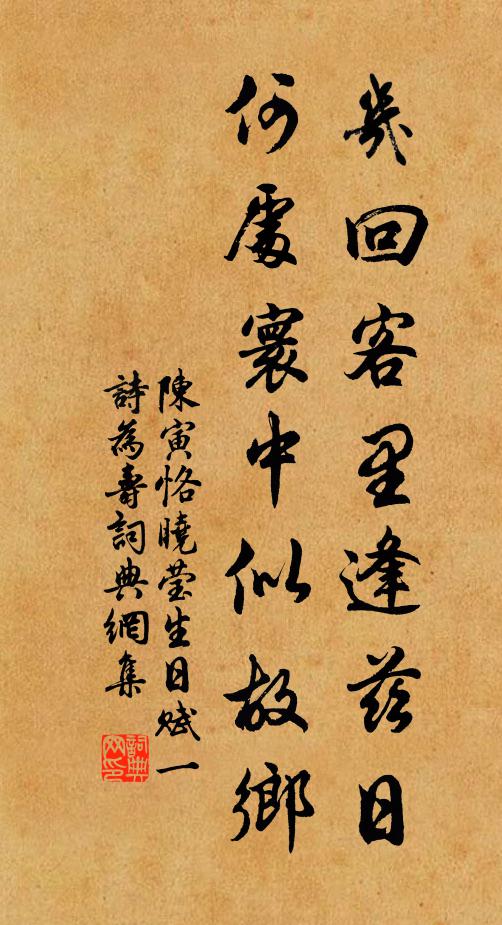 幾回客里逢茲日
何處寰中似故鄉
陳寅恪曉瑩生日賦一
詩為壽詞典網集
詞典网印